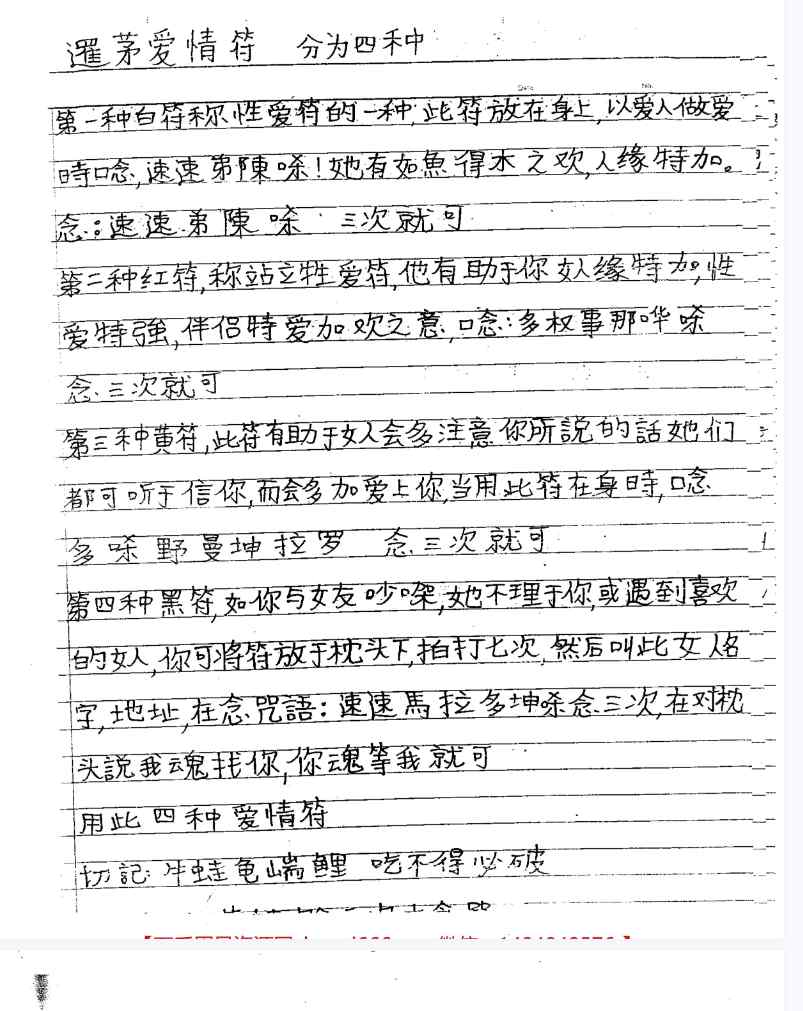 暹茅爱情符 分为四种
第一种白符称性爱符的一种,此符放在身上,以爱人做爱
時口念,速速弟陳唋!她有如魚得水之欢,人缘特加。
念:速速弟陳唋 三次就可
第二种红符,称站立性爱符,他有助于你女人缘特加,性
爱特強,伴侣特爱加欢之意,口念:多权事那哗唋
念三次就可
第三种黄符,此符有助于女人会多注意你所説的話她们
都可听于信你,而会多加爱上你,当用此符在身時,口念
多唋野曼坤拉罗 念三次就可
第四种黑符,如你与女友吵架,她不理于你,或遇到喜欢
的女人,你可将符放于枕头下,拍打七次,然后叫此女人名
字,地址,在念咒語:速速馬拉多坤唋念三次,在对枕
头説我魂找你,你魂等我就可
用此四种爱情符
切記:牛蛙龟 鯉 吃不得必破